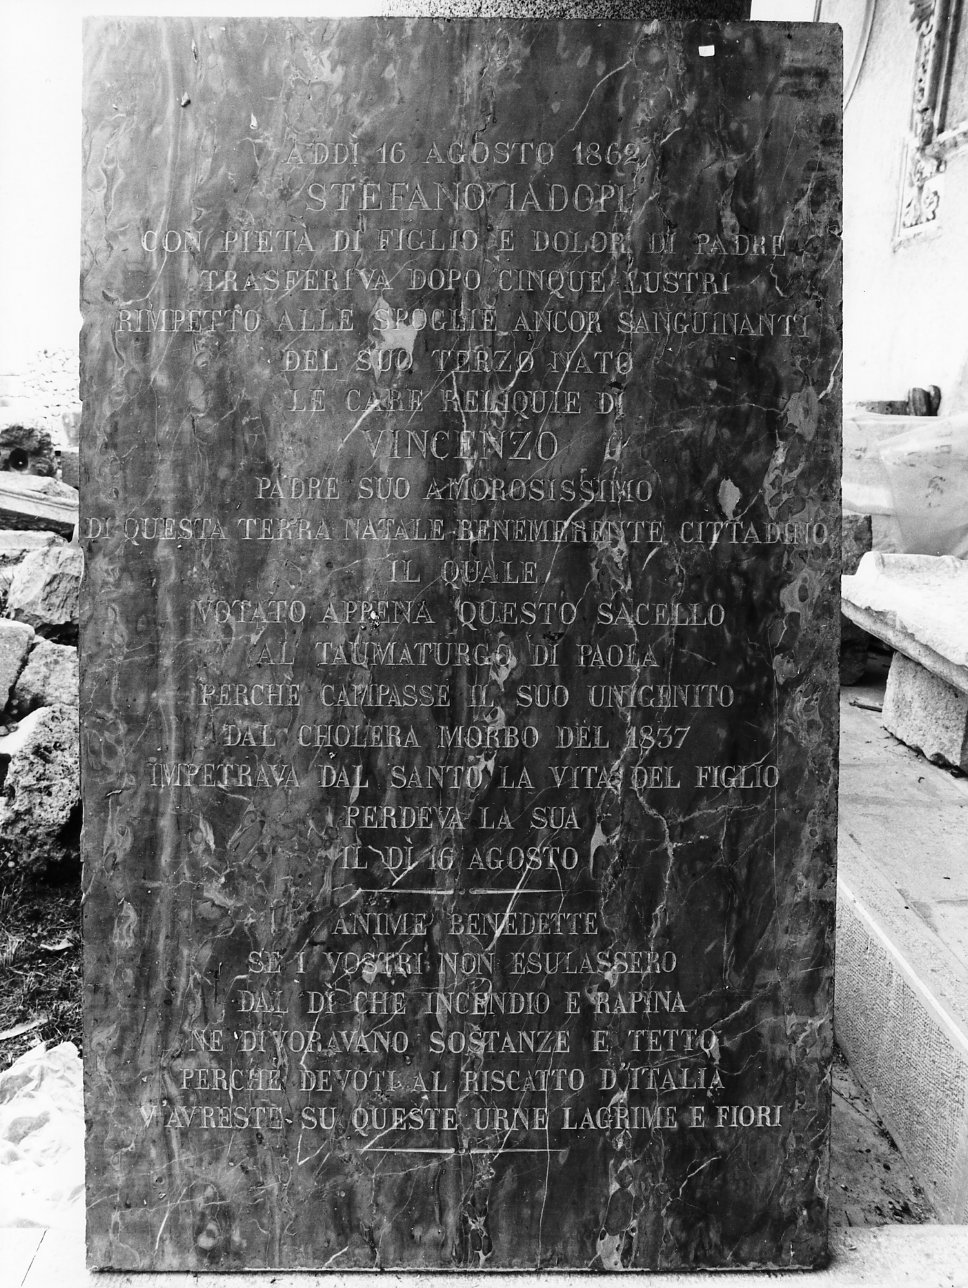 ADDÌ 16 AGOSTO 1862
STEFANO IADOPI
CON PIETÀ DI FIGLIO E DOLOR DI PADRE
TRASFERIVA DOPO CINQUE LUSTRI
RIMPETTO ALLE SPOGLIE ANCOR SANGUINANTI
DEL SUO TERZO NATO
LE CARE RELIQUIE DI
VINCENZO
PADRE SUO AMOROSISSIMO
DI QUESTA TERRA NATALE BENEMERENTE CITTADINO
IL QUALE
VOTATO APPENA QUESTO SACELLO
AL TAUMATURGO DI PAOLA
PERCHE CAMPASSE IL SUO UNIGENITO
DAL CHOLERA MORBO DEL 1837
IMPETRAVA DAL SANTO LA VITA DEL FIGLIO
PERDEVA LA SUA
IL DÌ 16 AGOSTO
ANIME BENEDETTE
SE I VOSTRI NON ESULASSERO
DAL DÌ CHE INCENDIO E RAPINA
NE DIVORAVANO SOSTANZE E TETTO
PERCHE DEVOTI AL RISCATTO D'ITALIA
V'AVRESTE SU QUESTE URNE LAGRIME E FIORI